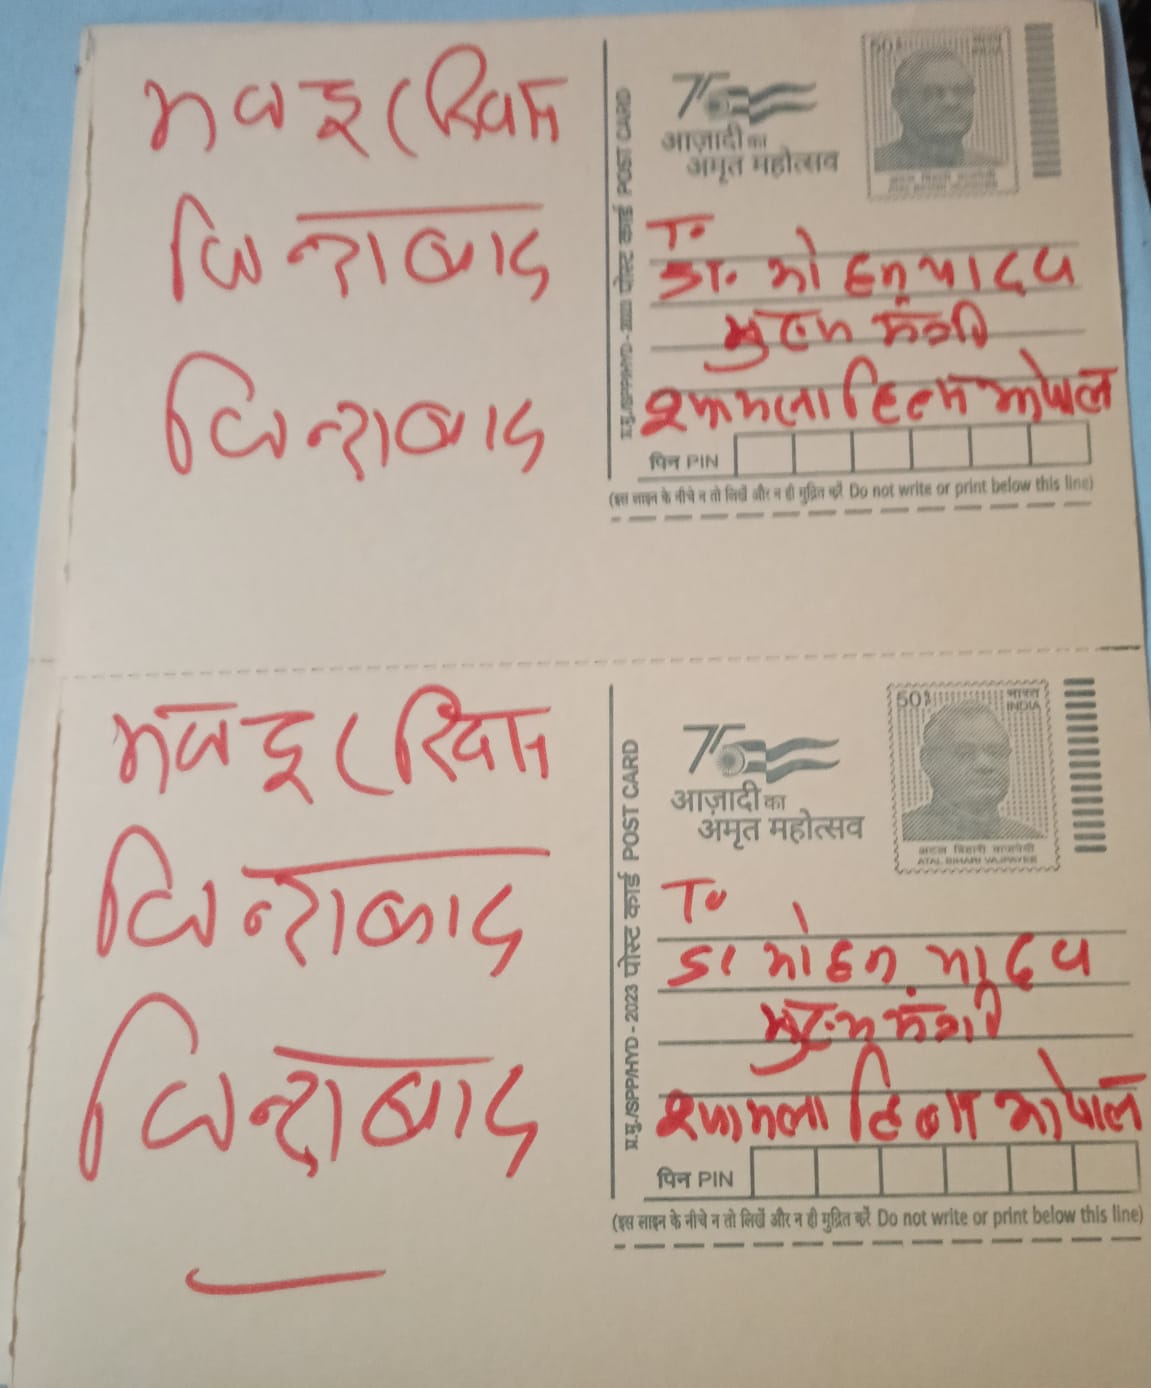 50
भारत
INDIA
75
आज़ादी का
अमृत महोत्सव
अटल बिहारी वाजपेयी
ATAL BIHARI VAJPAYEE
जिन्दाबाद
जिन्दाबाद
प्र.मु./SPP/HYD - 2023 पोस्ट कार्ड POST CARD
To
डा. मोहन यादव
मुख्य मंत्री
श्यामला हिल्स भोपाल
पिन PIN
(इस लाइन के नीचे न तो लिखें और न ही मुद्रित करें Do not write or print below this line)
50
भारत
INDIA
75
आज़ादी का
अमृत महोत्सव
अटल बिहारी वाजपेयी
ATAL BIHARI VAJPAYEE
जिन्दाबाद
जिन्दाबाद
प्र.मु./SPP/HYD - 2023 पोस्ट कार्ड POST CARD
To
डा मोहन यादव
मुख्य मंत्री
श्यामला हिल्स भोपाल
पिन PIN
(इस लाइन के नीचे न तो लिखें और न ही मुद्रित करें Do not write or print below this line)